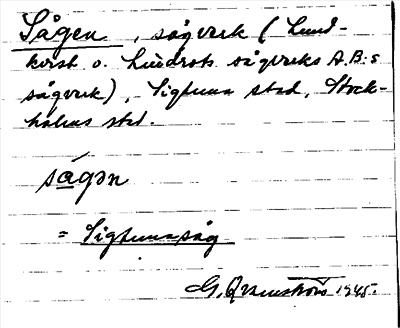 Sågen, sågverk (Lund-
kvist o. Lindrots sågverks A.B:s
sågverk), Sigtuna stad, Stock-
holms stad.
ságən
= Sigtunasåg
G. Qvarnström 1945.